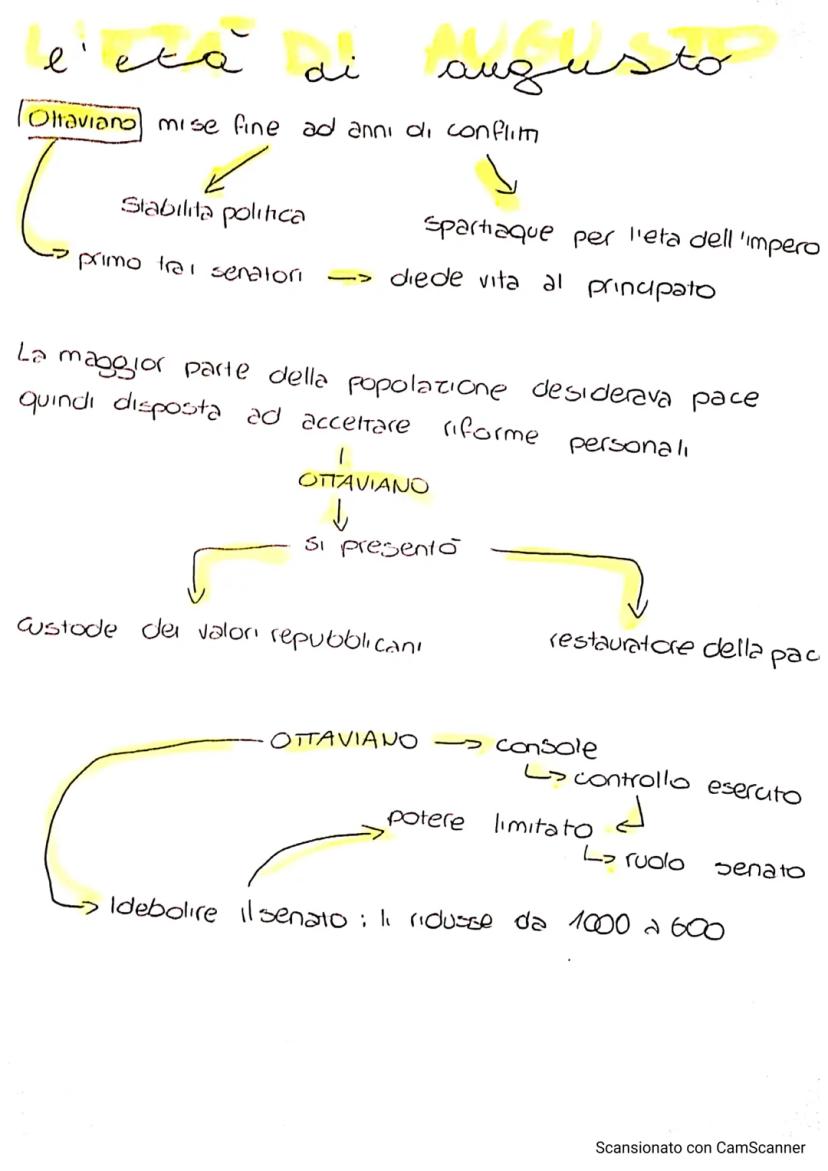 L'ETÀ DI AUGUSTO
l'età di augusto
Ottaviano mise fine ad anni di conflitti
Stabilità politica
spartiaque per l'età dell'impero
primo tra i senatori → diede vita al principato
La maggior parte della popolazione desiderava pace
quindi disposta ad accettare riforme personali
OTTAVIANO
si presentò
custode dei valori repubblicani
restauratore della pac
OTTAVIANO → console
controllo esercito
potere limitato
ruolo senato
Idebolire il senato : li ridusse da 1000 a 600
Scansionato con CamScanner